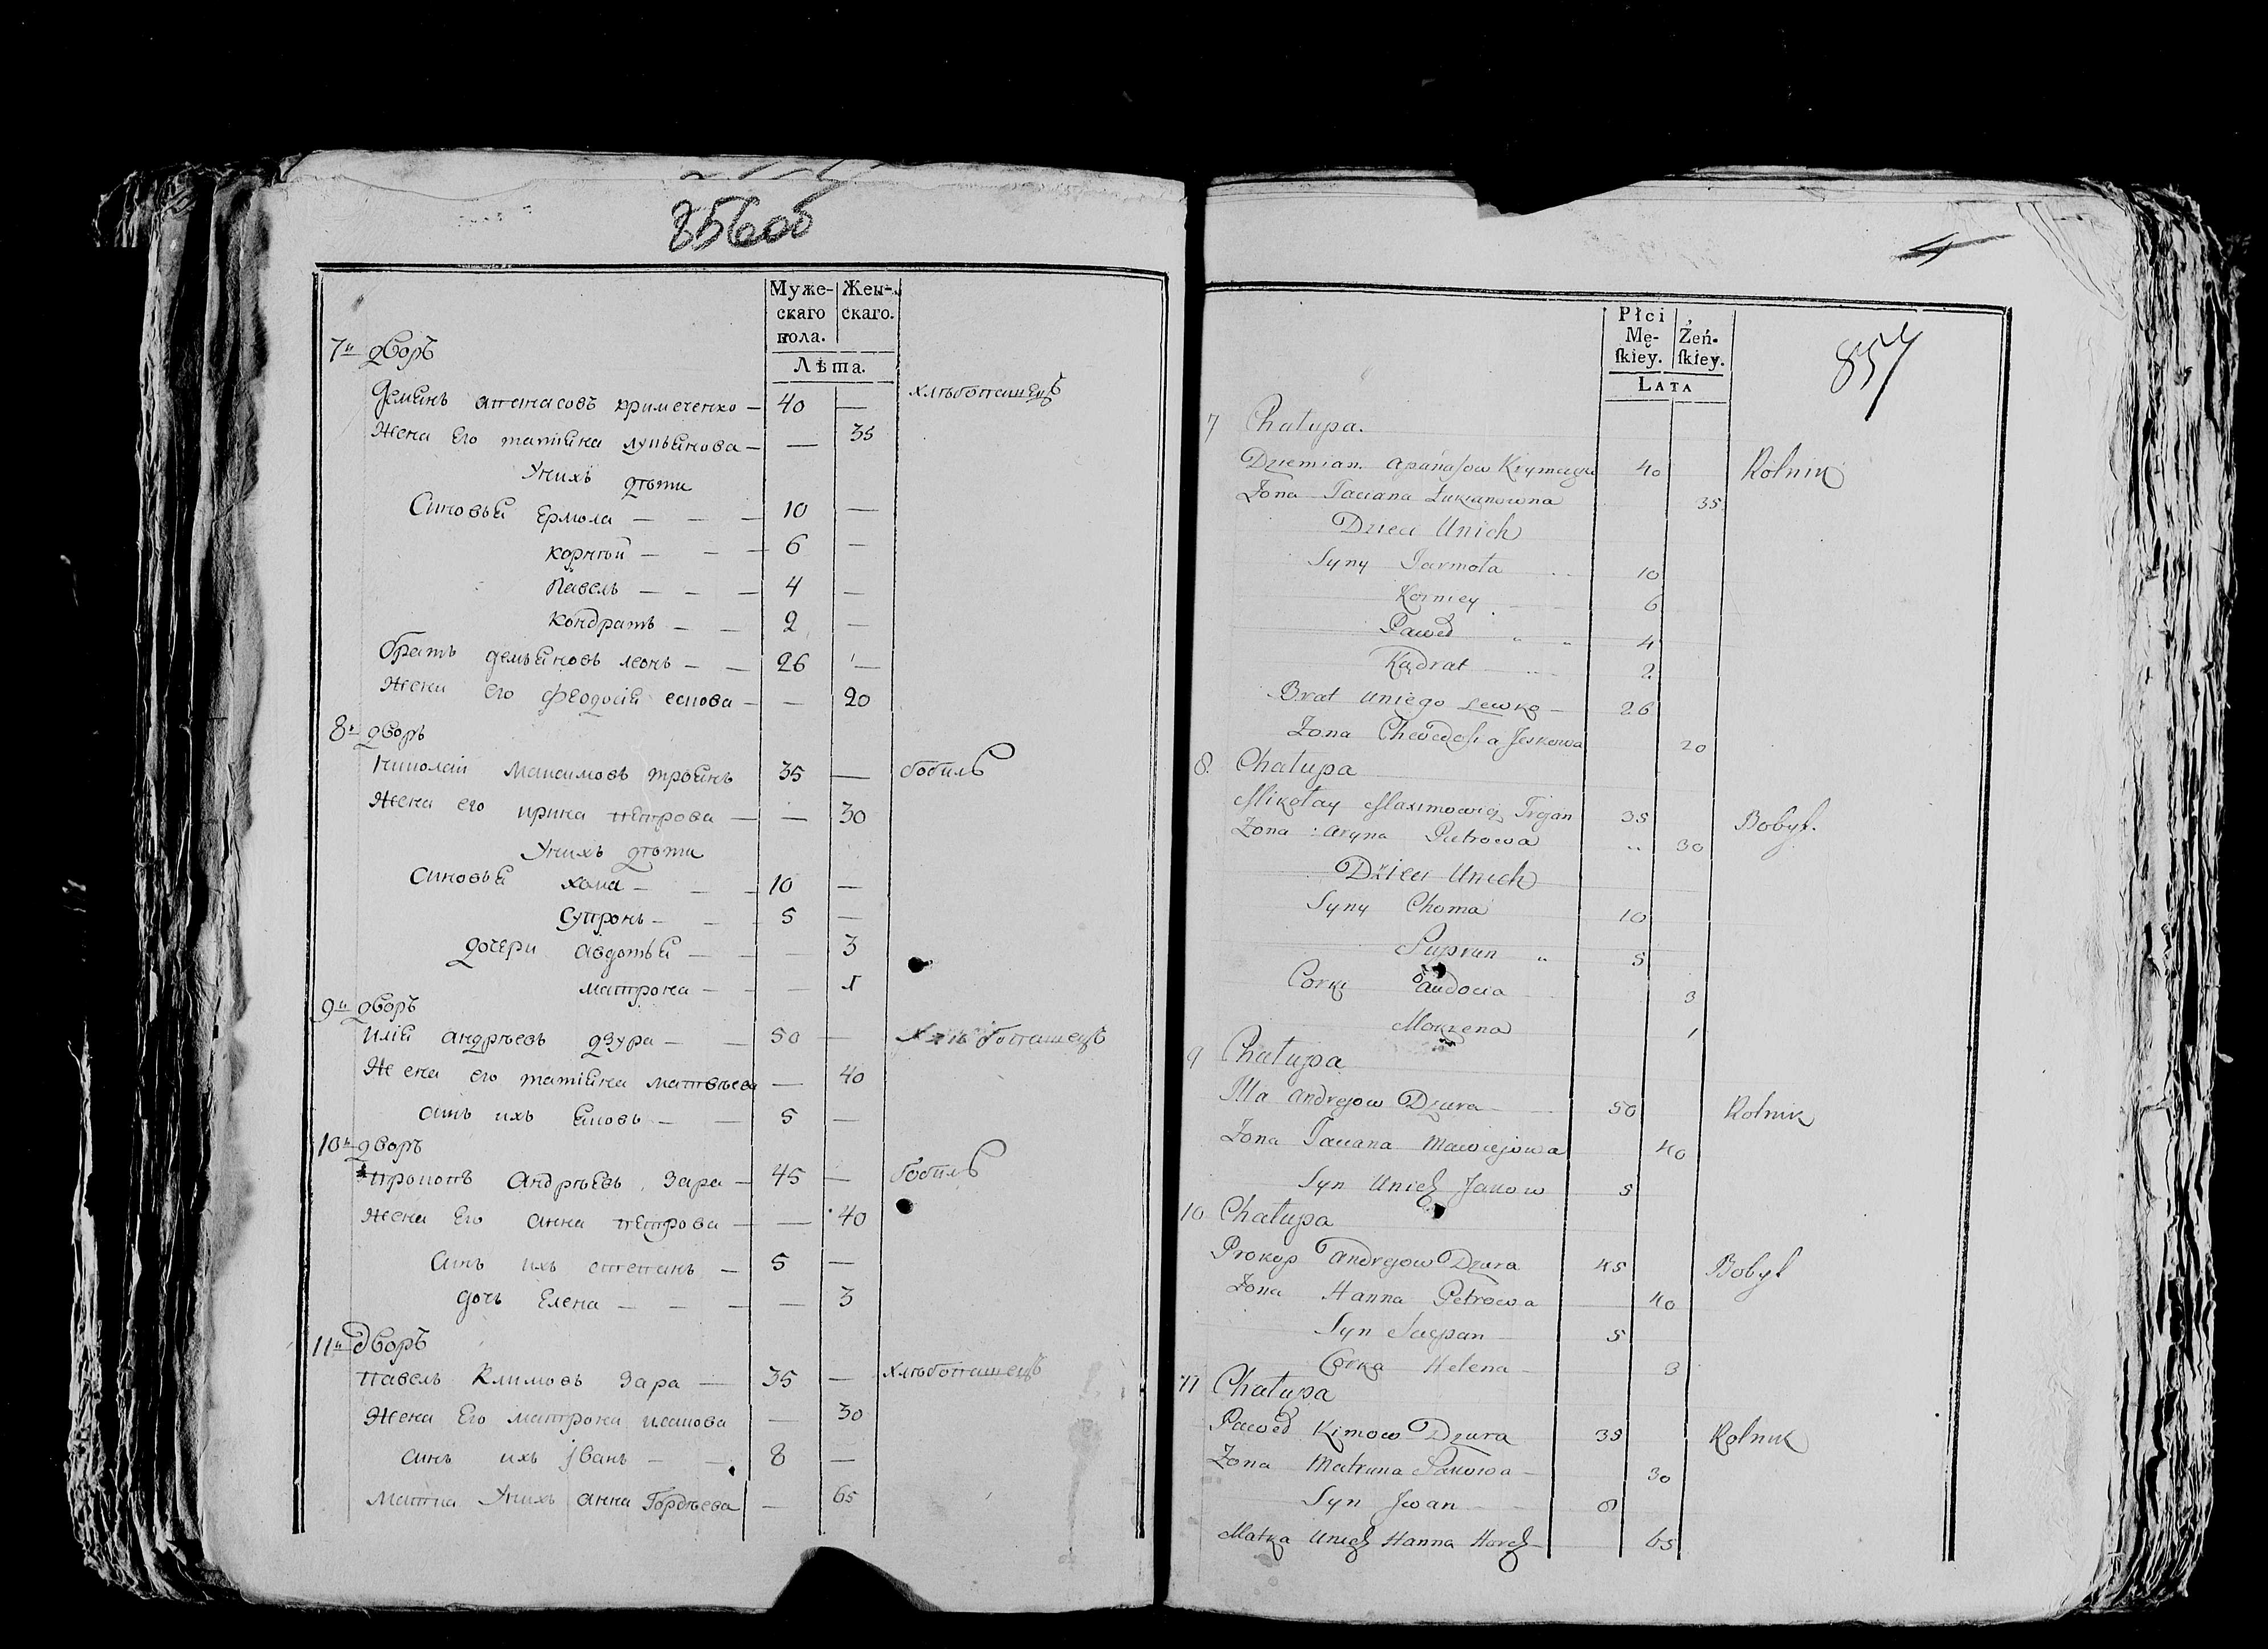 856об
Муже- Жен-
скаго скаго.
пола.
Лѣта.
7й дворъ
Демьянъ апанасовъ кримеченко — 40 — хлѣбопашецъ
Жена Его татіяна лукьянова — — 35
Унихъ дѣти
Синовья Ермола — — — 10 —
корнѣй — — — 6 —
Павелъ — — — 4 —
Кондратъ — — 2 —
братъ демьяновъ леонъ — — 26 —
Жена его Феодосія — — 20
8й дворъ
Николай Максимовъ троянъ 35 — бобилъ
Жена его ирина петрова — — 30
Унихъ дѣти
Синовья хома — — — 10 —
Супронъ — — 5 —
дочери авдотья — — — 3
матрона — — — 1
9й дворъ
илія андрѣевъ дзура — — 50 — Хлѣбопашецъ
Жена его татіяна матвѣева — 40
синъ ихъ яковъ — — 5 —
10й дворъ
прокопъ Андрѣевъ Зара — 45 — бобилъ
Жена Его анна петрова — — 40
синъ ихъ степанъ — 5 —
дочь Елена — — — — 3
11й дворъ
павелъ Климовъ Зара — 35 — хлѣбопашецъ
Жена Его матрона исакова — 30
синъ ихъ јванъ — — 8 —
Матка Унихъ анна Гордѣева — 65
857
Płci
Mę- Żeń-
skiey. skiey.
LATA
7 Chałupa.
Dziemian apanasow 40 Rolnik
Żona Taciana Łukianowna 35
Dzieci Unich
Syny Jarmoła 10
Korniey 6
Paweł 4
Kądrat 2
Brat Uniego Lewko — 26
Żona Chwedosia Jeskowa 20
8. Chałupa
Mikołay Maximowicz Trojan 35 Bobyl.
Żona aryna Pietrowa 30
Dzieci Unich
Syny Choma 10
Supron 5
Corki audocia 3
1
9 Chałupa
Illa andrejow Dzura 50 Rolnik
Żona Taciana Maciejowa 40
Syn Unich Jakow 5
10 Chałupa
Prokop andrejow Dzura 45 Bobyl
Żona Hanna Petrowa 40
Syn Sacpan 5
Corka Helena — 3
11 Chałupa
Paweł Kimow Dzura 35 Rolnik
Żona Matruna 30
Syn Jwan — 8
Matka Unich Hanna 65